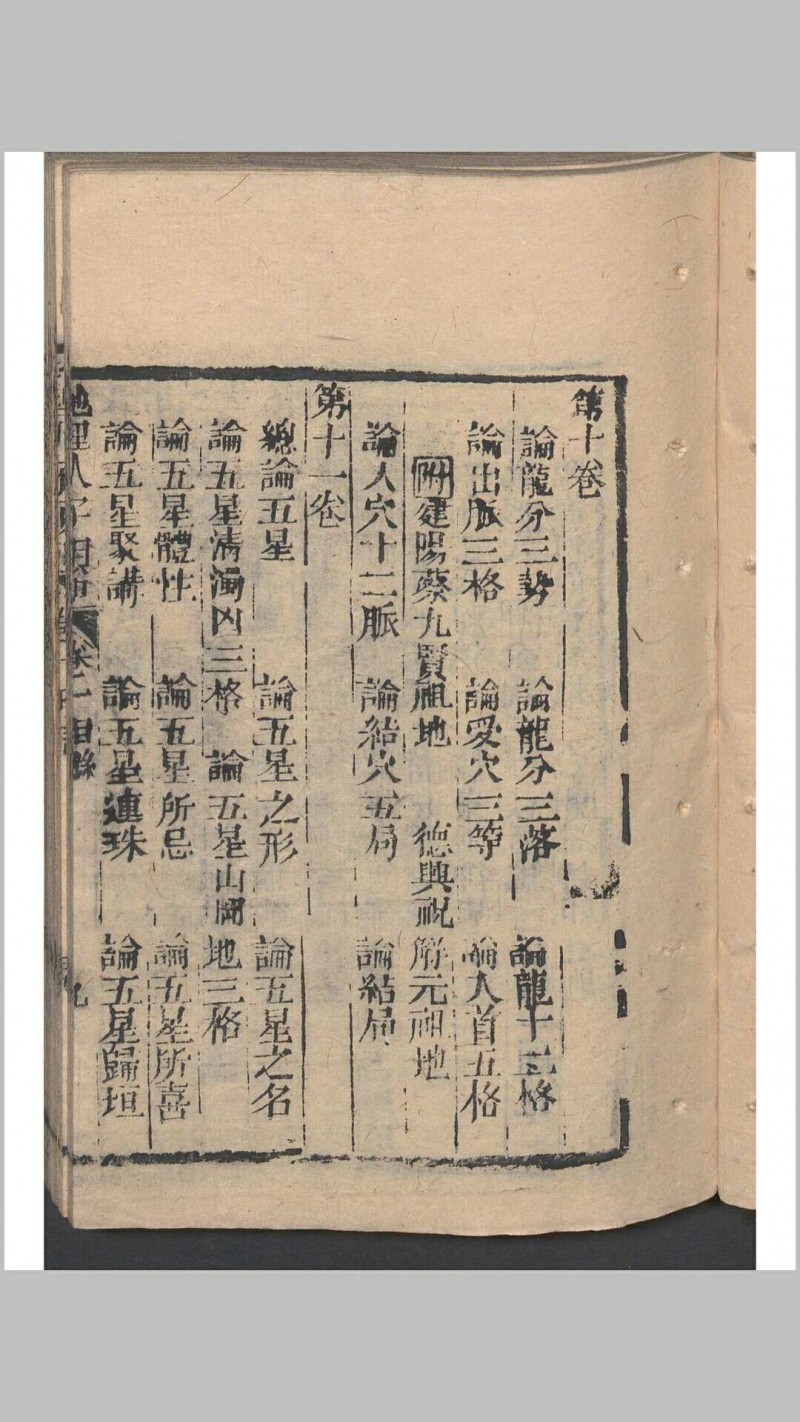 第十卷
論龍分三勢 論龍分三落 論龍十二格
論出脈三格 論受穴三等 論入首五格
附建陽蔡九賢祖地 德興祝解元祖地
論入穴十二脈 論結穴五局 論結局
第十一卷
總論五星 論五星之形 論五星之名
論五星清濁凶三格 論五星山岡地三格
論五星體性 論五星所忌 論五星所喜
論五星聚講 論五星連珠 論五星歸垣
地理人子須知 卷二 目錄 九